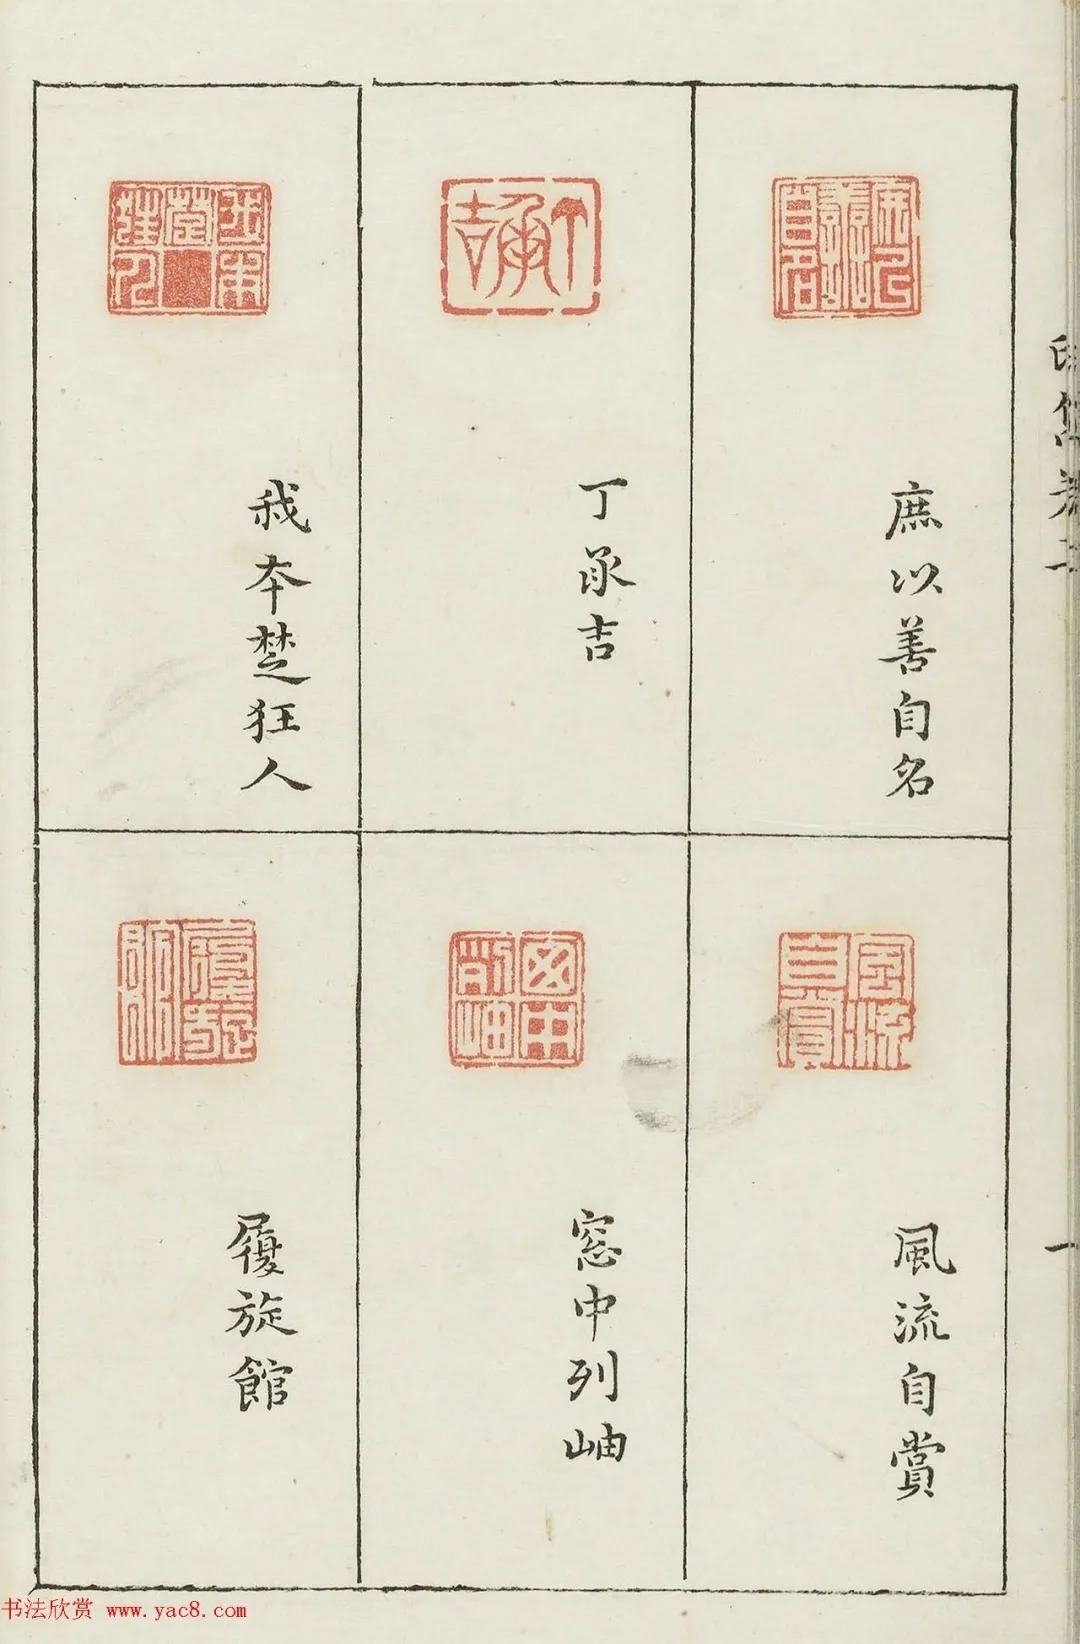 庶以善自名
丁承吉
我本楚狂人
風流自賞
窓中列岫
履旋館
一
书法欣赏 www.yac8.com